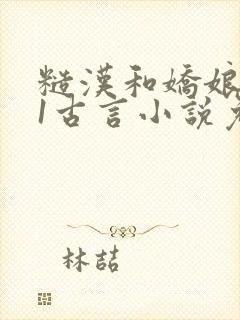 糙漢和嬌娘
1古言小說
林喆